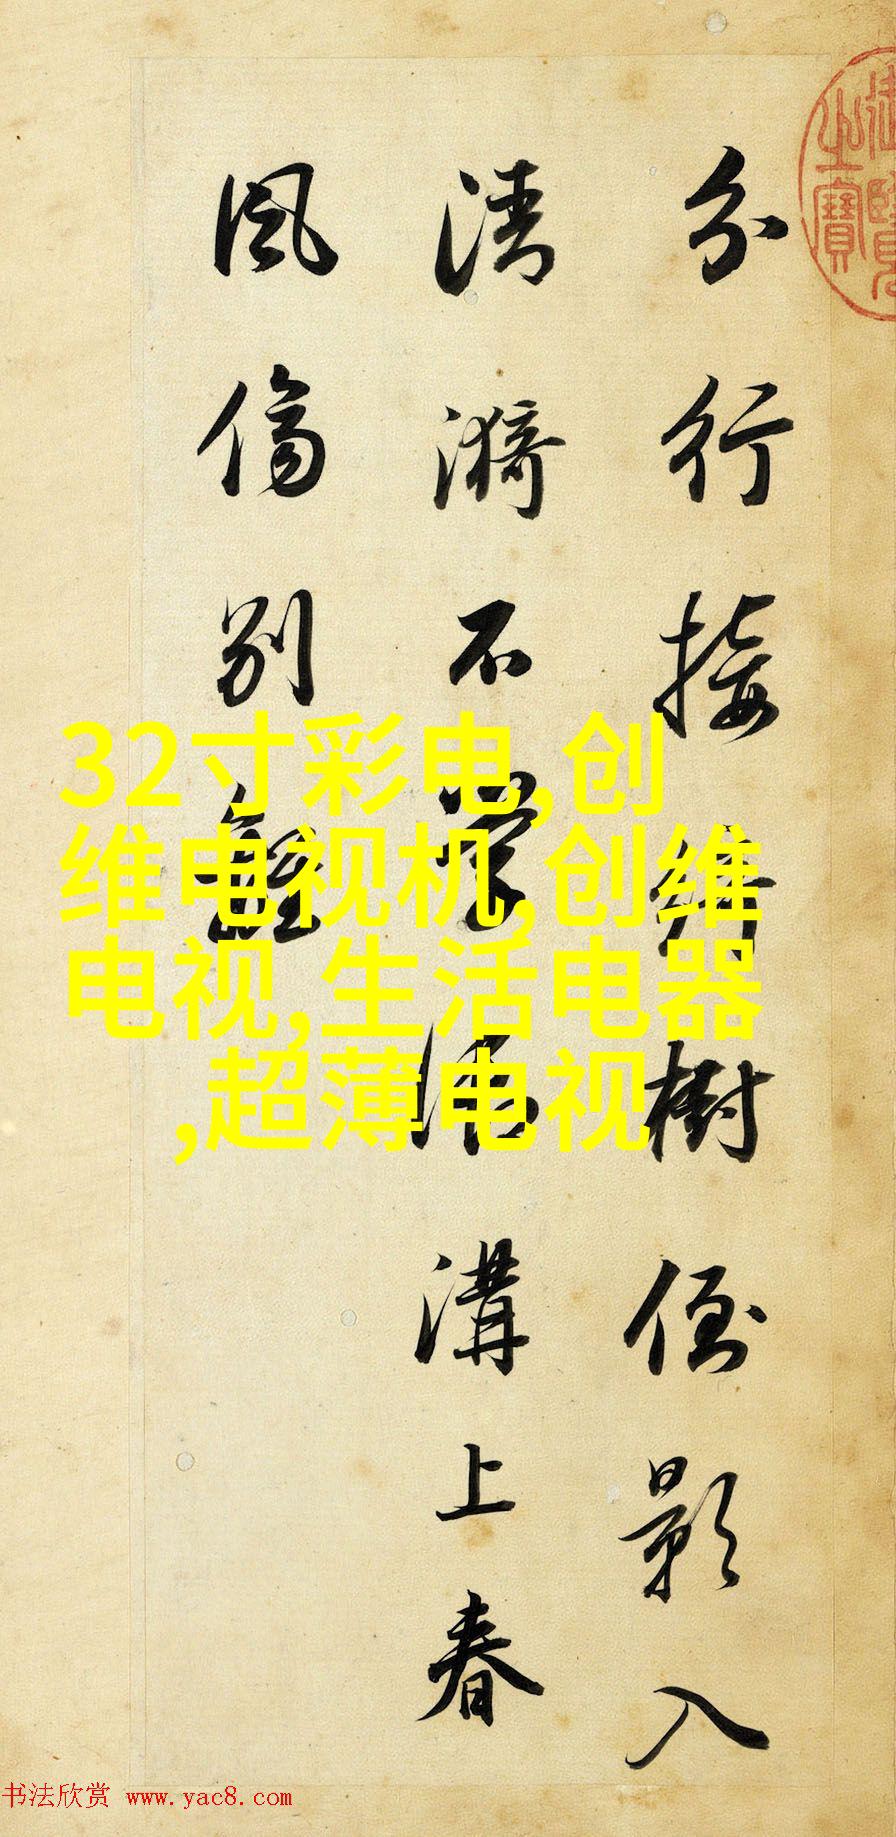 分行接綺樹倒影入
清漪不學御溝上春
風傷別離
32寸彩电,创
维电视机,创维
电视,生活电器
,超薄电视
之寶
书法欣赏 www.yac8.com